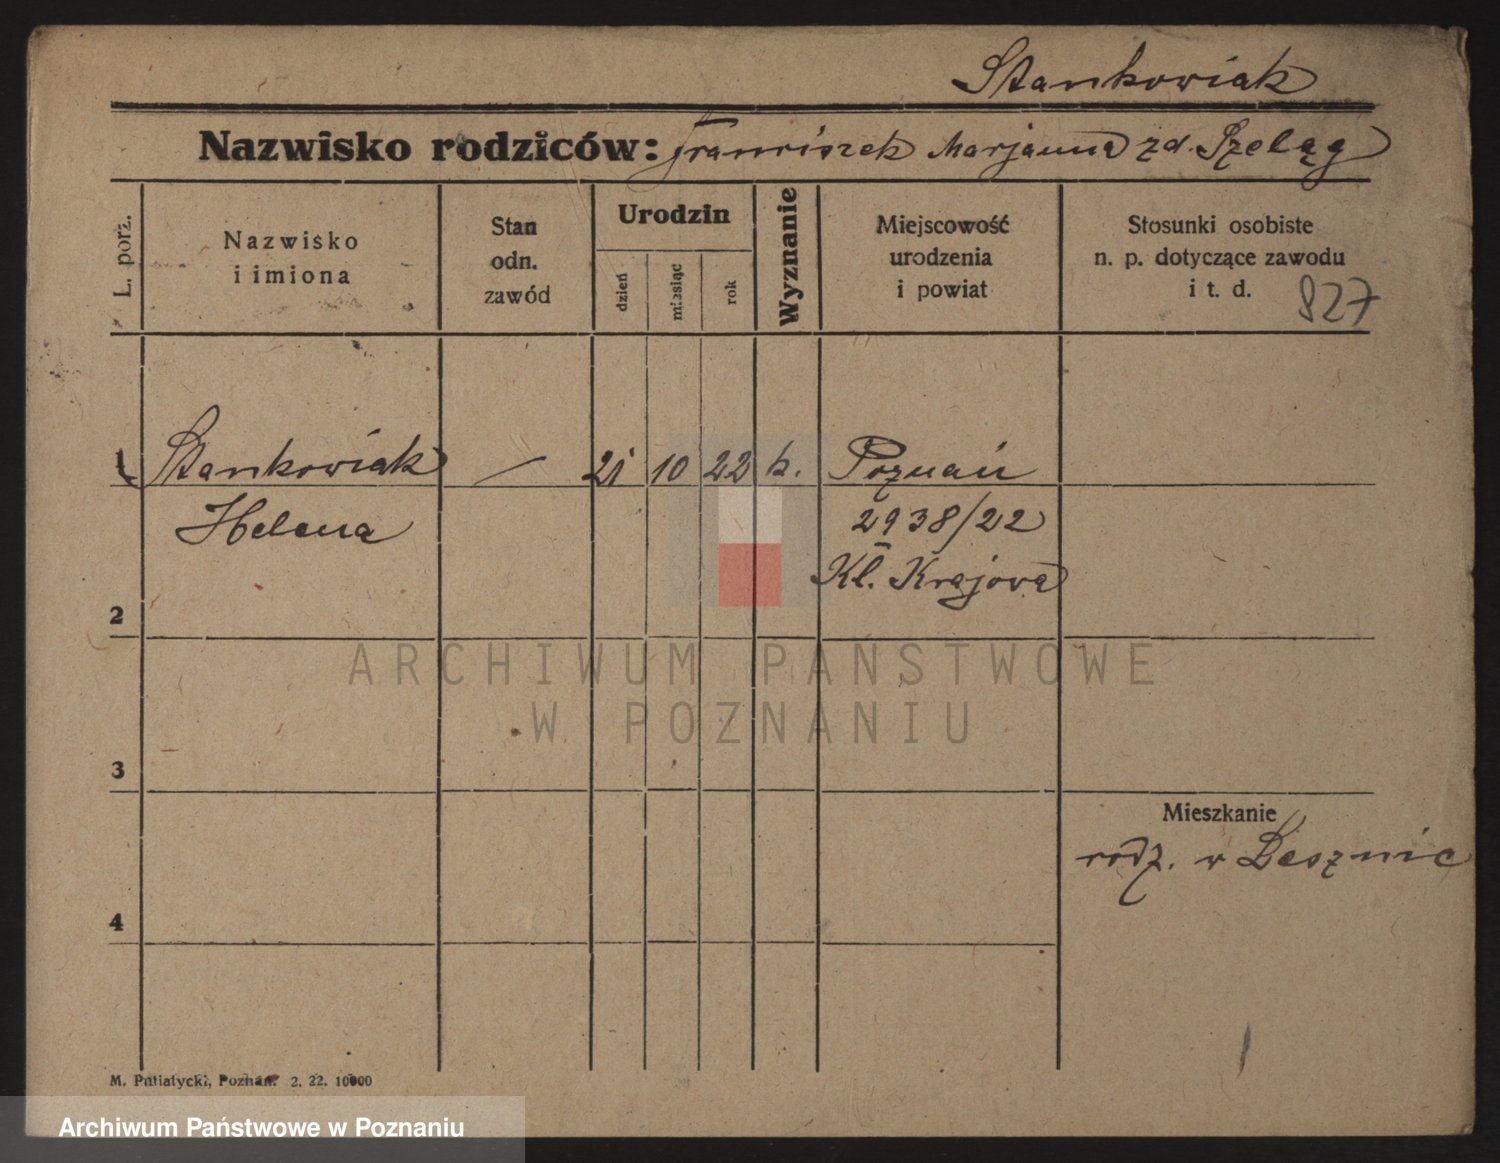 Stankowiak
Nazwisko rodziców: Franciszek Marjanna zd. Szeląg
L. porz.
Nazwisko
i imiona
Stan
odn.
zawód
Urodzin
dzień
miesiąc
rok
Wyznanie
Miejscowość
urodzenia
i powiat
Stosunki osobiste
n. p. dotyczące zawodu
i t. d.
827
1 Stankowiak — 21 10 22 k. Poznań
Helena 2938/22
Kl. Krajowa
2
ARCHIWUM PAŃSTWOWE
W POZNANIU
3
Mieszkanie
rodz. w
4
M. Putiatycki, Poznań. 2. 22. 10000
Archiwum Państwowe w Poznaniu